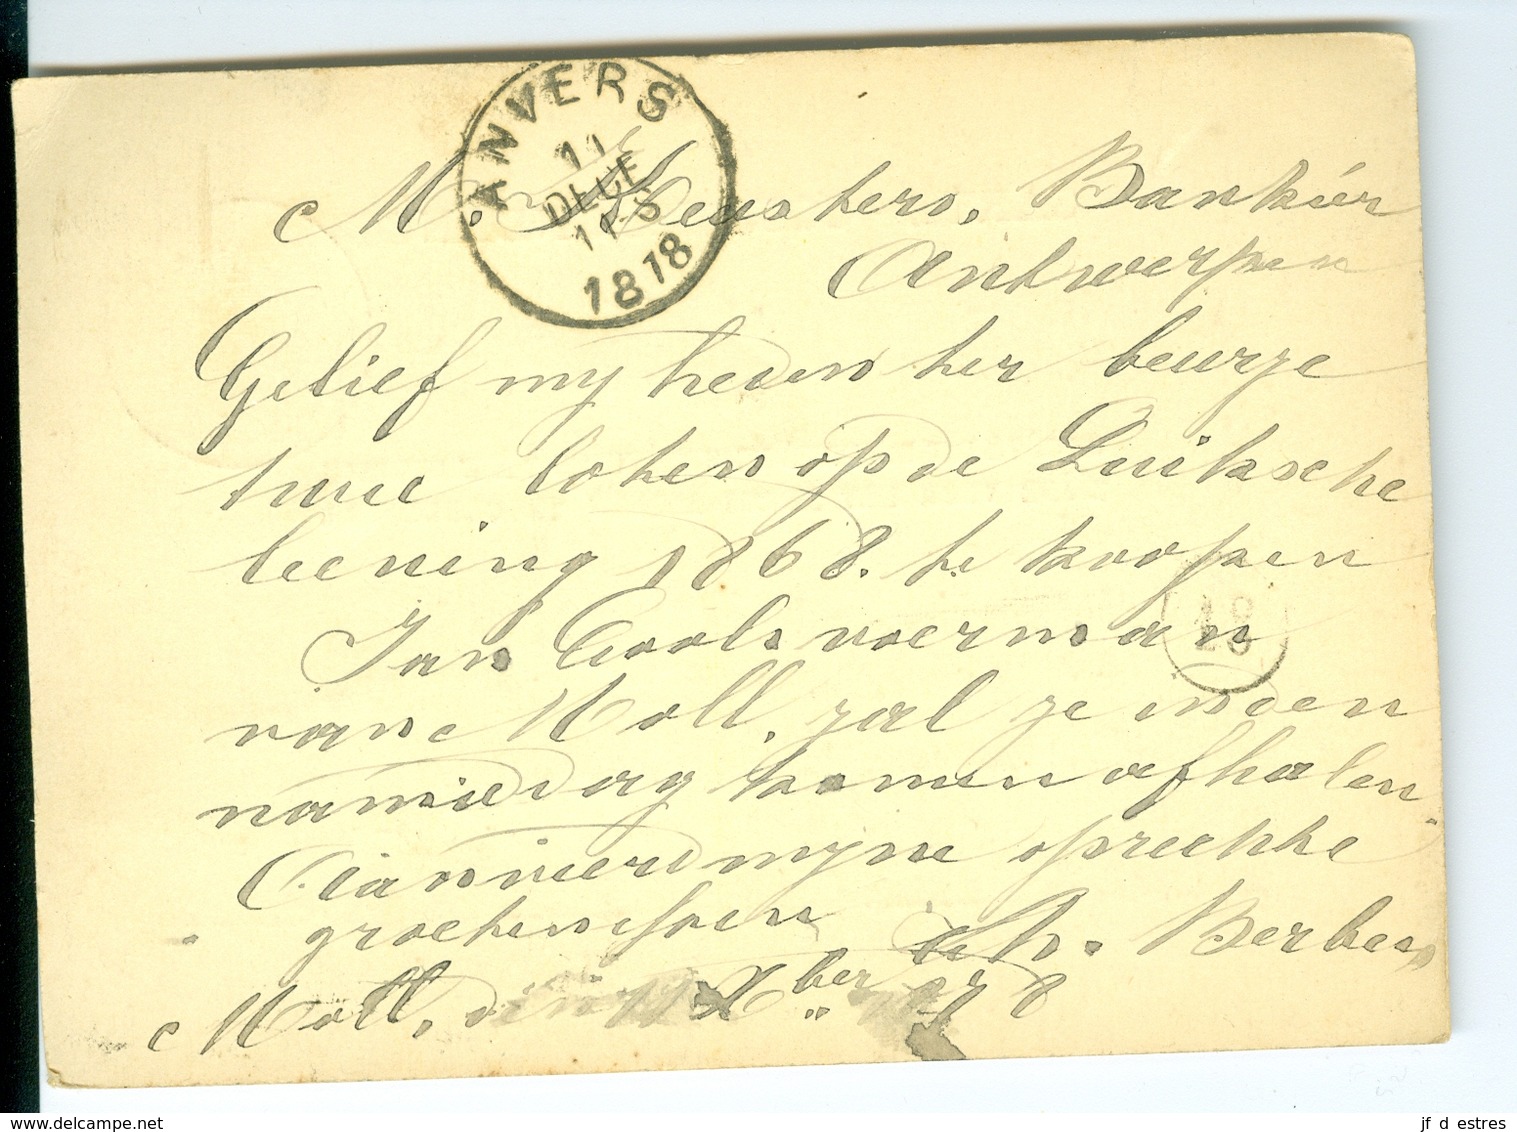 ANVERS
11
DECE
11-S
1878
M. J. Keusters, Bankier
Antwerpen
Gelief my heden ter beurze
twee loten op de Luiksche
leening 1868. te koopen
Jan Cools voerman
van Moll, zal ze in den
namiddag komen afhalen.
Aanveerd myne oprechte
groetenissen Ch. Berbers
Moll, den 11 Xber 1878
delcampe.net
jf d estres